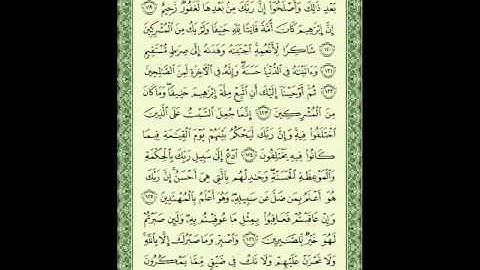 بَعْدِ ذَٰلِكَ وَأَصْلَحُوٓا۟ إِنَّ رَبَّكَ مِنۢ بَعْدِهَا لَغَفُورٌ رَّحِيمٌ ١١٩
إِنَّ إِبْرَٰهِيمَ كَانَ أُمَّةً قَانِتًا لِّلَّهِ حَنِيفًا وَلَمْ يَكُ مِنَ الْمُشْرِكِينَ
١٢٠ شَاكِرًا لِّأَنْعُمِهِ ٱجْتَبَىٰهُ وَهَدَىٰهُ إِلَىٰ صِرَٰطٍ مُّسْتَقِيمٍ
١٢١ وَءَاتَيْنَٰهُ فِى ٱلدُّنْيَا حَسَنَةً وَإِنَّهُۥ فِى ٱلْـَٔاخِرَةِ لَمِنَ ٱلصَّٰلِحِينَ
١٢٢ ثُمَّ أَوْحَيْنَآ إِلَيْكَ أَنِ ٱتَّبِعْ مِلَّةَ إِبْرَٰهِيمَ حَنِيفًا وَمَا كَانَ
مِنَ ٱلْمُشْرِكِينَ ١٢٣ إِنَّمَا جُعِلَ ٱلسَّبْتُ عَلَى ٱلَّذِينَ
ٱخْتَلَفُوا۟ فِيهِ وَإِنَّ رَبَّكَ لَيَحْكُمُ بَيْنَهُمْ يَوْمَ ٱلْقِيَٰمَةِ فِيمَا
كَانُوا۟ فِيهِ يَخْتَلِفُونَ ١٢٤ ٱدْعُ إِلَىٰ سَبِيلِ رَبِّكَ بِٱلْحِكْمَةِ
وَٱلْمَوْعِظَةِ ٱلْحَسَنَةِ وَجَٰدِلْهُم بِٱلَّتِى هِىَ أَحْسَنُ إِنَّ رَبَّكَ
هُوَ أَعْلَمُ بِمَن ضَلَّ عَن سَبِيلِهِۦ وَهُوَ أَعْلَمُ بِٱلْمُهْتَدِينَ ١٢٥
وَإِنْ عَاقَبْتُمْ فَعَاقِبُوا۟ بِمِثْلِ مَا عُوقِبْتُم بِهِۦ وَلَئِن صَبَرْتُمْ
لَهُوَ خَيْرٌ لِّلصَّٰبِرِينَ ١٢٦ وَٱصْبِرْ وَمَا صَبْرُكَ إِلَّا بِٱللَّهِ
وَلَا تَحْزَنْ عَلَيْهِمْ وَلَا تَكُ فِى ضَيْقٍ مِّمَّا يَمْكُرُونَ